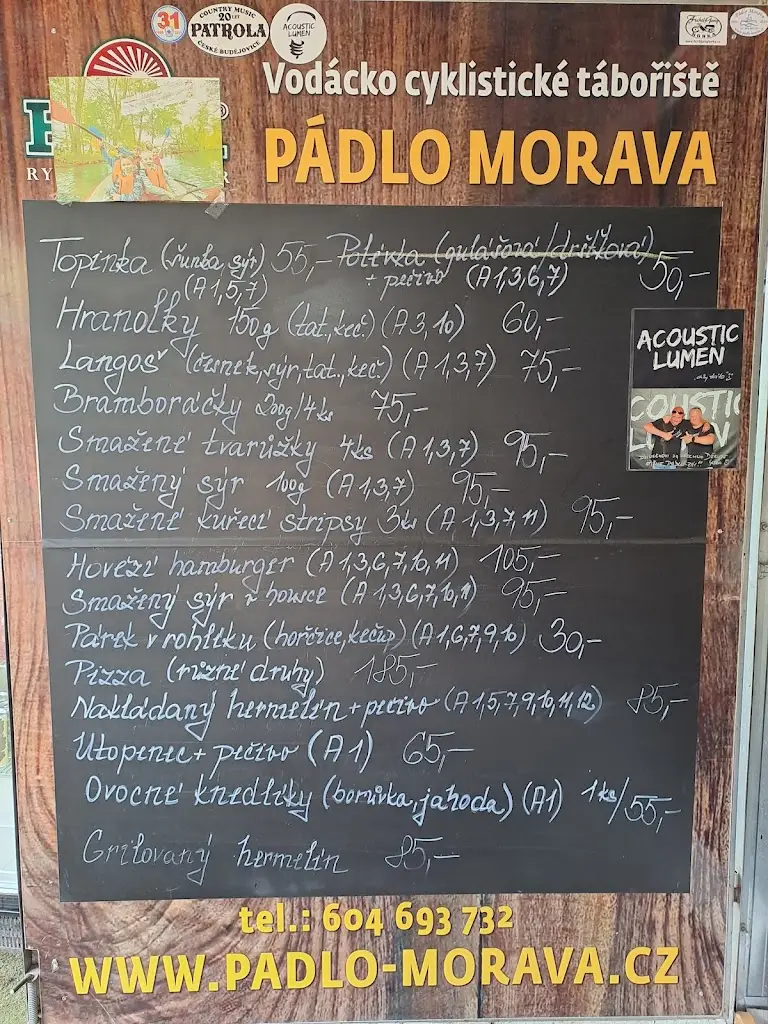 31
COUNTRY MUSIC
20 LET
PATROLA
ČESKÉ BUDĚJOVICE
ACOUSTIC
LUMEN
Vodácko cyklistické tábořiště
PÁDLO MORAVA
RY
Topinka (šunka, sýr) 55,- Polévka (gulášová/dršťková) 50,-
(A 1,5,7) + pečivo (A 1,3,6,7)
Hranolky 150g (tat., keč.) (A 3,10) 60,-
Langoš (česnek, sýr, tat., keč.) (A 1,3,7) 75,-
Bramboráčky 200g/4ks 75,-
Smažené tvarůžky 4ks (A 1,3,7) 95,-
Smažený sýr 100g (A 1,3,7) 95,-
Smažené kuřecí stripsy 3ks (A 1,3,7,11) 95,-
Hovězí hamburger (A 1,3,6,7,10,11) 105,-
Smažený sýr v housce (A 1,3,6,7,10,11) 95,-
Párek v rohlíku (hořčice, kečup) (A 1,6,7,9,10) 30,-
Pizza (různé druhy) 185,-
Nakládaný hermelín + pečivo (A 1,5,7,9,10,11,12) 85,-
Utopenec + pečivo (A 1) 65,-
Ovocné knedlíky (borůvka, jahoda) (A1) 1 ks/55,-
Grilovaný hermelín 85,-
ACOUSTIC
LUMEN
tel.: 604 693 732
WWW.PADLO-MORAVA.CZ